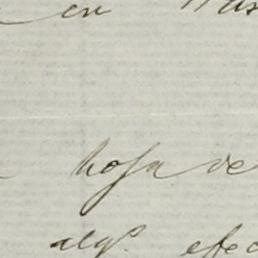 en
hoja de
algº efec